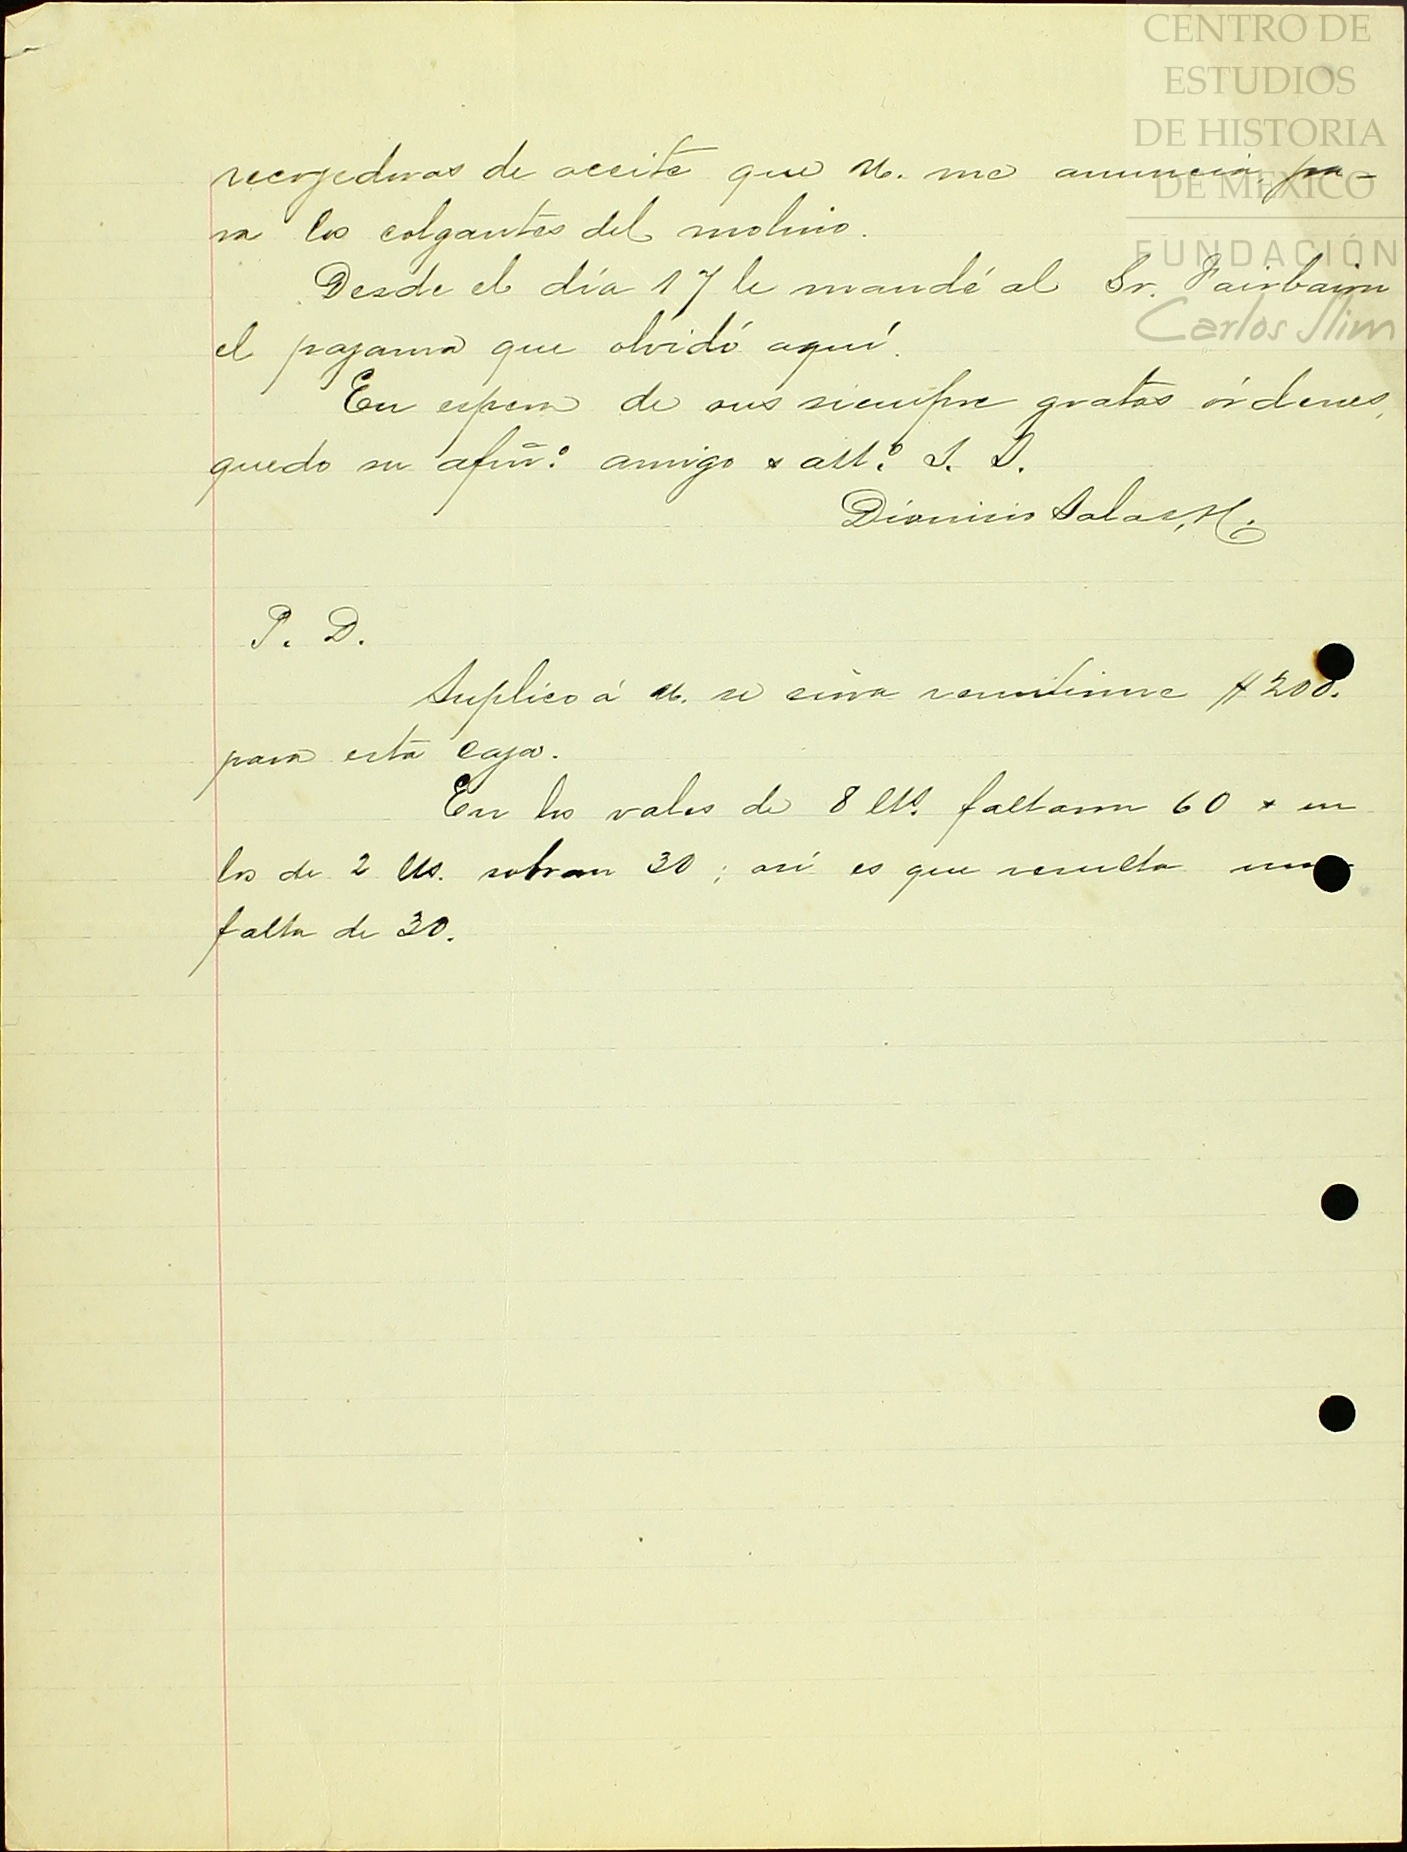 CENTRO DE
ESTUDIOS
DE HISTORIA
DE MÉXICO
FUNDACIÓN
Carlos Slim
recojedoras de aceite que U. me anuncia, pa-
ra los colgantes del molino.
Desde el día 17 le mandé al Sr. Fairbairn
el pajama que olvidó aquí.
En espera de sus siempre gratas órdenes,
quedo su afm̃.º amigo & att.º S. S.
Dionicio Salas, H.
P. D.
Suplico á U. se sirva remitirme $200.
para esta caja.
En los vales de 8 lts. faltaron 60 & en
los de 2 lts. sobran 30; así es que resulta una
falta de 30.